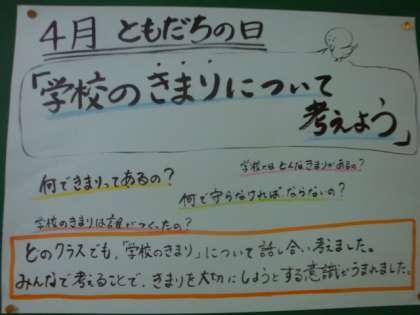 4月 ともだちの日
「学校のきまりについて
考えよう」
学校にはどんなきまりがあるの?
何できまりってあるの?
何で守らなければならないの?
学校のきまりは誰がつくったの?
どのクラスでも、「学校のきまり」について話し合い考えました。
みんなで考えることで、きまりを大切にしようとする意識がうまれました。